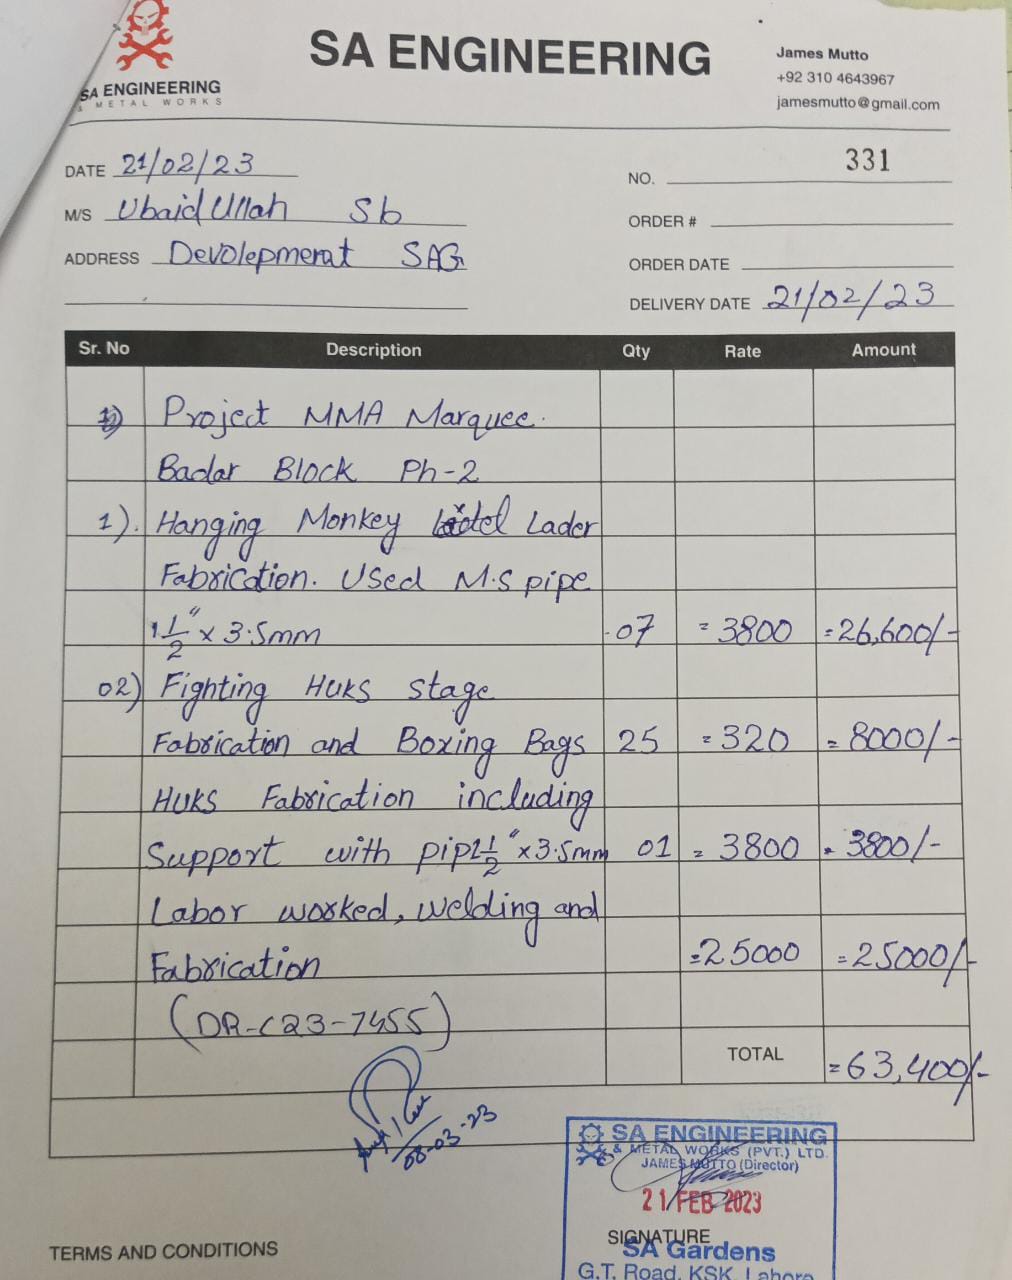 SA ENGINEERING
& METAL WORKS
SA ENGINEERING
James Mutto
+92 310 4643967
jamesmutto@gmail.com
DATE 21/02/23
NO. 331
M/S Ubaid Ullah Sb
ORDER #
ADDRESS Devolepmerat SAG
ORDER DATE
DELIVERY DATE 21/02/23
Sr. No Description Qty Rate Amount
1) Project MMA Marquee.
Badar Block Ph-2
1). Hanging Monkey Lader
Fabrication. Used M.s pipe
1 1/2" x 3.5mm 07 = 3800 = 26,600/-
02) Fighting Huks stage
Fabrication and Boxing Bags 25 = 320 = 8000/-
Huks Fabrication including
Support with pip 1 1/2" x 3.5mm 01 = 3800 = 3800/-
Labor worked, welding and
Fabrication =25000 =25000/-
(DR-C23-7455)
TOTAL =63,400/-
08-03-23
SA ENGINEERING
& METAL WORKS (PVT.) LTD.
JAMES MUTTO (Director)
21 FEB 2023
SIGNATURE
SA Gardens
G.T. Road, KSK, Lahore
TERMS AND CONDITIONS